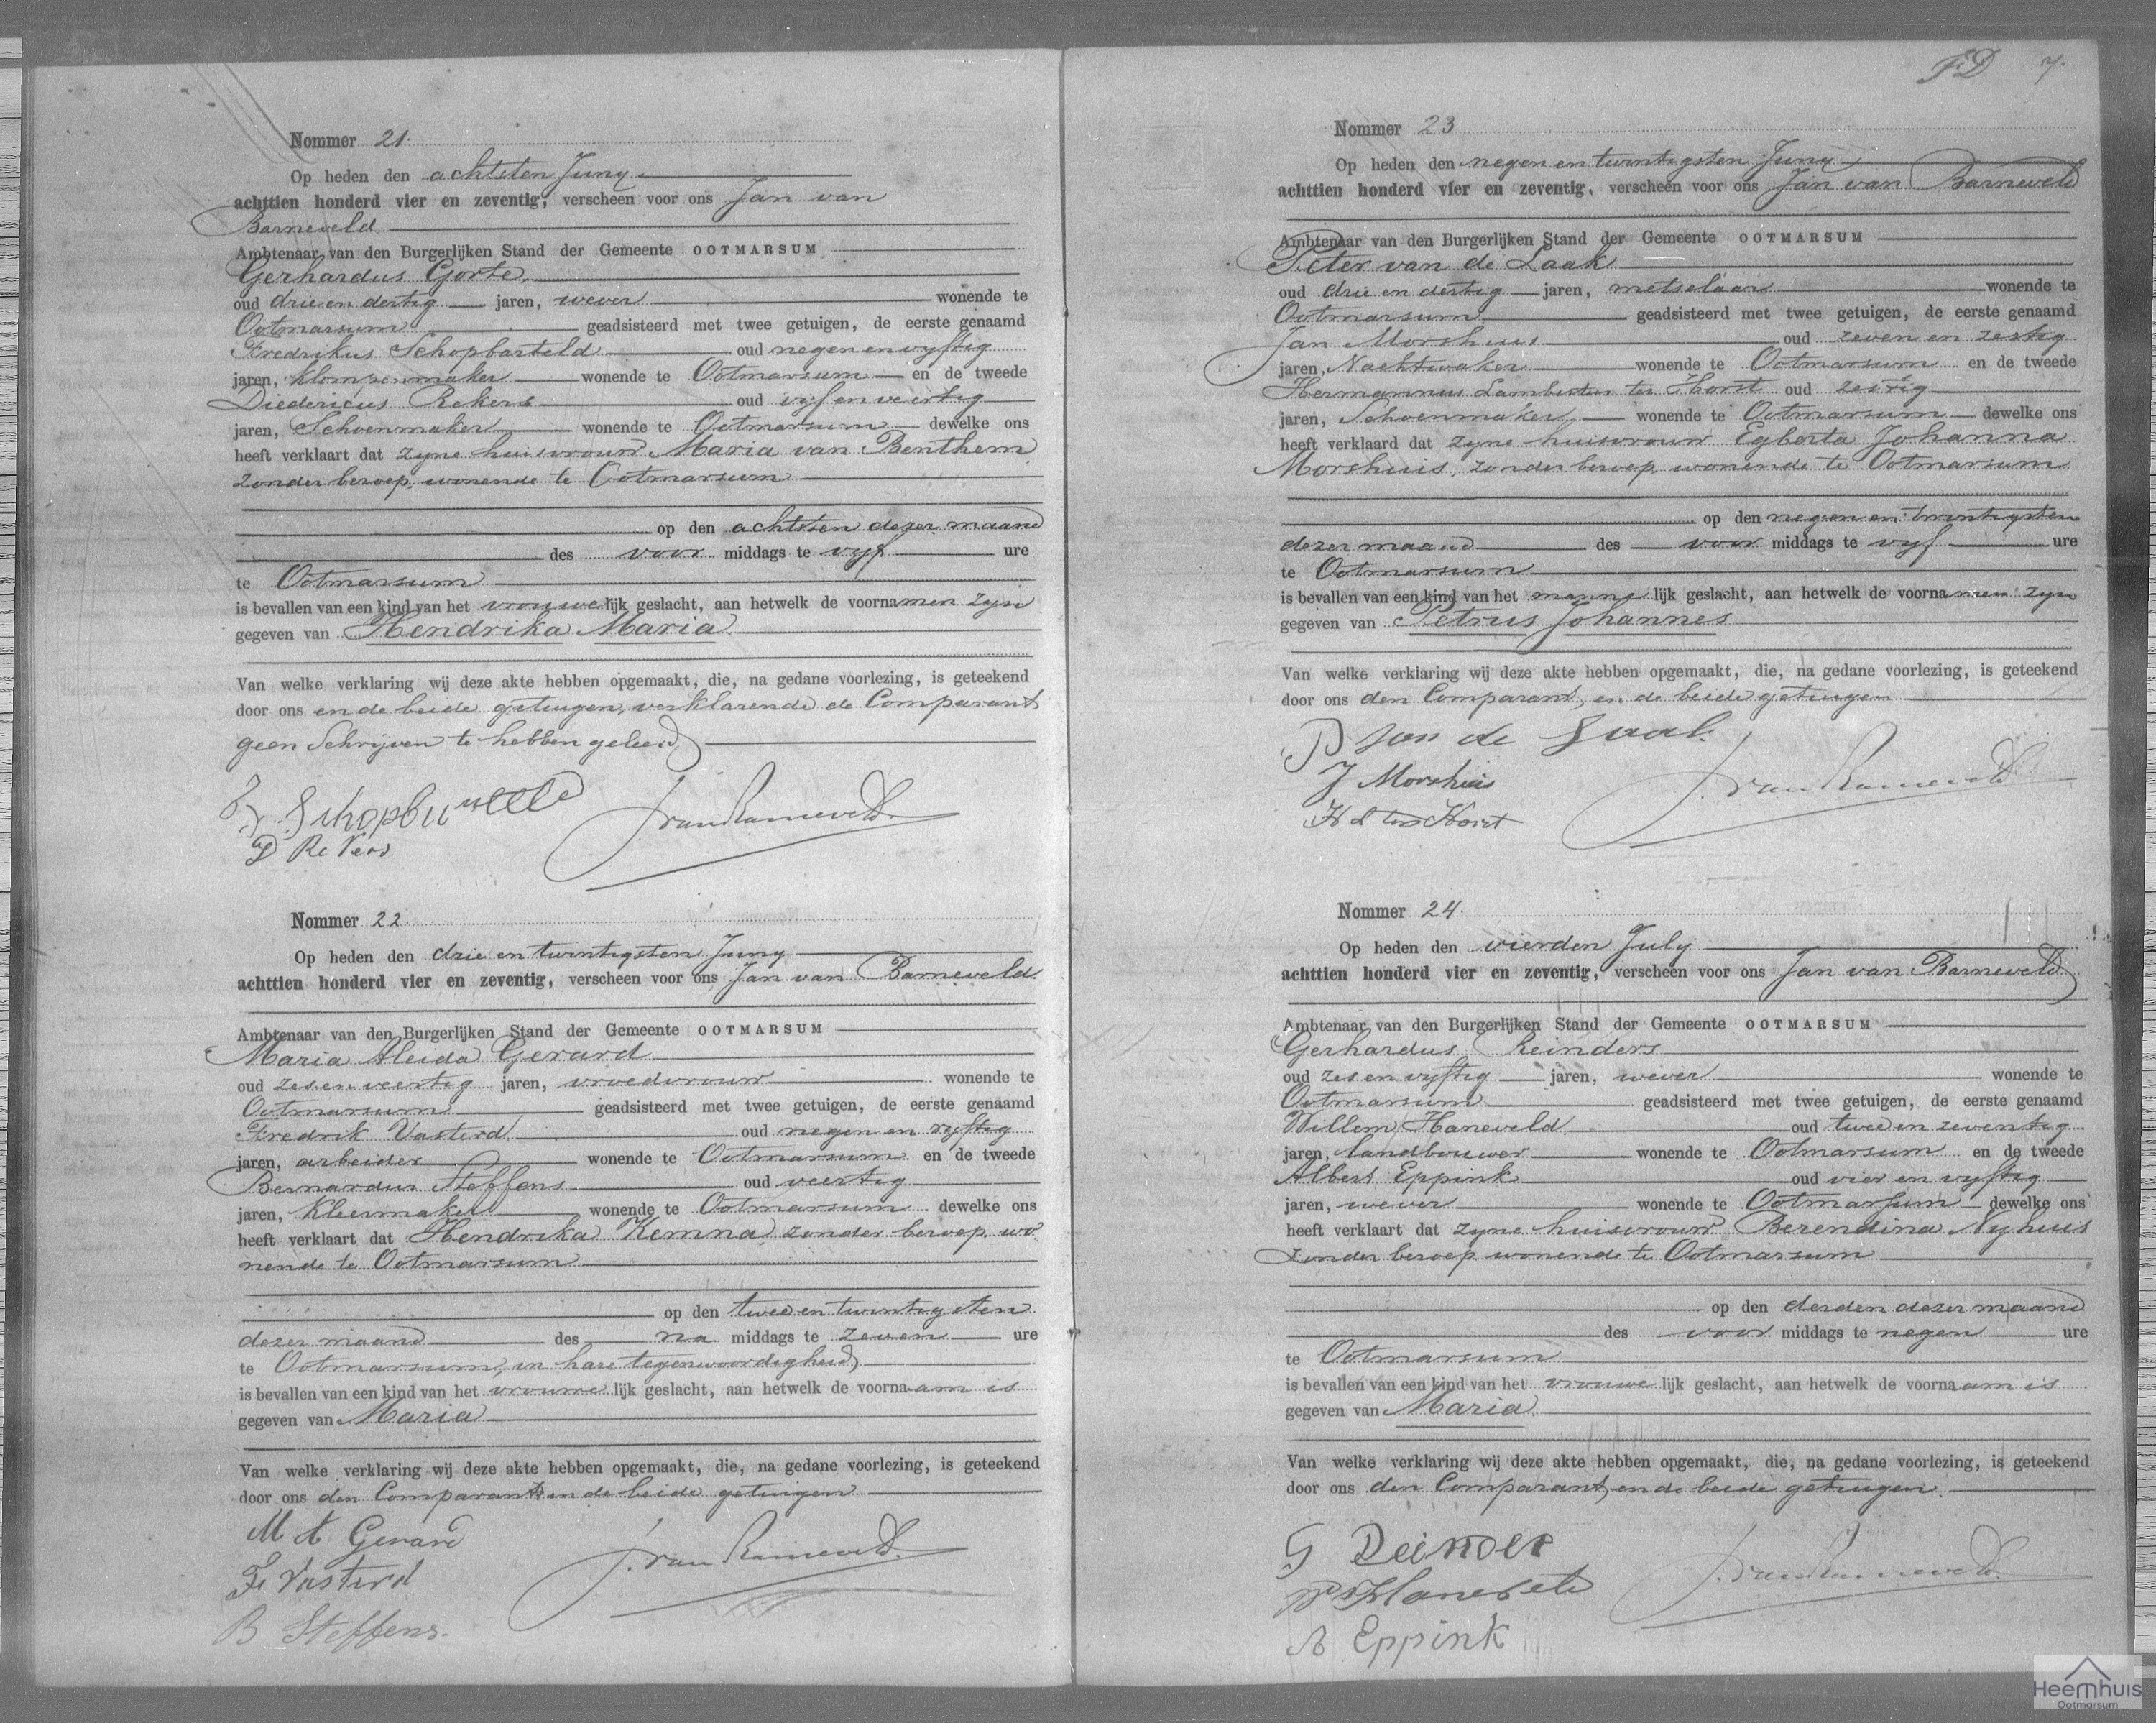 Nommer 21.
Op heden den achtsten Juny
achttien honderd vier en zeventig, verscheen voor ons Jan van
Barneveld
Ambtenaar van den Burgerlijken Stand der Gemeente OOTMARSUM
Gerhardus Gorte,
oud drie en dertig jaren, wever wonende te
Ootmarsum geadsisteerd met twee getuigen, de eerste genaamd
Fredrikus Schopbarteld oud negen en vyftig
jaren, klompenmaker wonende te Ootmarsum en de tweede
Diedericus Rekers oud vyf en veertig
jaren, Schoenmaker wonende te Ootmarsum dewelke ons
heeft verklaart dat zyne huisvrouw Maria van Benthem
zonder beroep, wonende te Ootmarsum
op den achtsten dezer maand
des voor middags te vyf ure
te Ootmarsum
is bevallen van een kind van het vrouwelijk geslacht, aan hetwelk de voornamen zyn
gegeven van Hendrika Maria
Van welke verklaring wij deze akte hebben opgemaakt, die, na gedane voorlezing, is geteekend
door ons en de beide getuigen, verklarende de Comparant
geen Schrijven te hebben geleerd
D Rekers
J. van Barneveld.
Nommer 22.
Op heden den drie en twintigsten Juny
achttien honderd vier en zeventig, verscheen voor ons Jan van Barneveld
Ambtenaar van den Burgerlijken Stand der Gemeente OOTMARSUM
Maria Aleida Gerard
oud zes en veertig jaren, vroedvrouw wonende te
Ootmarsum geadsisteerd met twee getuigen, de eerste genaamd
Fredrik Vasterd oud negen en vyftig
jaren, arbeider wonende te Ootmarsum en de tweede
Bernardus Steffens oud veertig
jaren, kleermaker wonende te Ootmarsum dewelke ons
heeft verklaart dat Hendrika Kemna zonder beroep wo
nende te Ootmarsum
op den twee en twintigsten
dezer maand des na middags te zeven ure
te Ootmarsum, in hare tegenwoordigheid,
is bevallen van een kind van het vrouwe lijk geslacht, aan hetwelk de voornaam is
gegeven van Maria
Van welke verklaring wij deze akte hebben opgemaakt, die, na gedane voorlezing, is geteekend
door ons den Comparant en de beide getuigen
M A Gerard
F Vasterd
B Steffens.
J. van Barneveld.
FD 7.
Nommer 23
Op heden den negen en twintigsten Juny
achttien honderd vier en zeventig, verscheen voor ons Jan van Barneveld
Ambtenaar van den Burgerlijken Stand der Gemeente OOTMARSUM
Peter van de Laak
oud drie en dertig jaren, metselaar wonende te
Ootmarsum geadsisteerd met twee getuigen, de eerste genaamd
Jan Morshuis oud zeven en zestig
jaren, Nachtwaker wonende te Ootmarsum en de tweede
Hermannus Lambertus ter Horst oud zestig
jaren, Schoenmaker wonende te Ootmarsum dewelke ons
heeft verklaard dat zyne huisvrouw Egberta Johanna
Morshuis, zonder beroep, wonende te Ootmarsum
op den negen en twintigsten
dezer maand des voor middags te vyf ure
te Ootmarsum
is bevallen van een kind van het manne lijk geslacht, aan hetwelk de voornamen zyn
gegeven van Petrus Johannes
Van welke verklaring wij deze akte hebben opgemaakt, die, na gedane voorlezing, is geteekend
door ons den Comparant, en de beide getuigen
P van de Laak.
J Morshuis
H L ter Horst
J. van Barneveld
Nommer 24.
Op heden den vierden July
achttien honderd vier en zeventig, verscheen voor ons Jan van Barneveld
Ambtenaar van den Burgerlijken Stand der Gemeente OOTMARSUM
Gerhardus Reinders
oud zes en vyftig jaren, wever wonende te
Ootmarsum geadsisteerd met twee getuigen, de eerste genaamd
Willem Haneveld oud twee en zeventig
jaren, landbouwer wonende te Ootmarsum en de tweede
Albert Eppink oud vier en vyftig
jaren, wever wonende te Ootmarsum dewelke ons
heeft verklaart dat zyne huisvrouw Berendina Nyhuis
zonder beroep wonende te Ootmarsum
op den derden dezer maand
des voor middags te negen ure
te Ootmarsum
is bevallen van een kind van het vrouwe lijk geslacht, aan hetwelk de voornaam is
gegeven van Maria
Van welke verklaring wij deze akte hebben opgemaakt, die, na gedane voorlezing, is geteekend
door ons den Comparant, en de beide getuigen.
G Reinder
A Eppink
J. van Barneveld.
Heemhuis
Ootmarsum